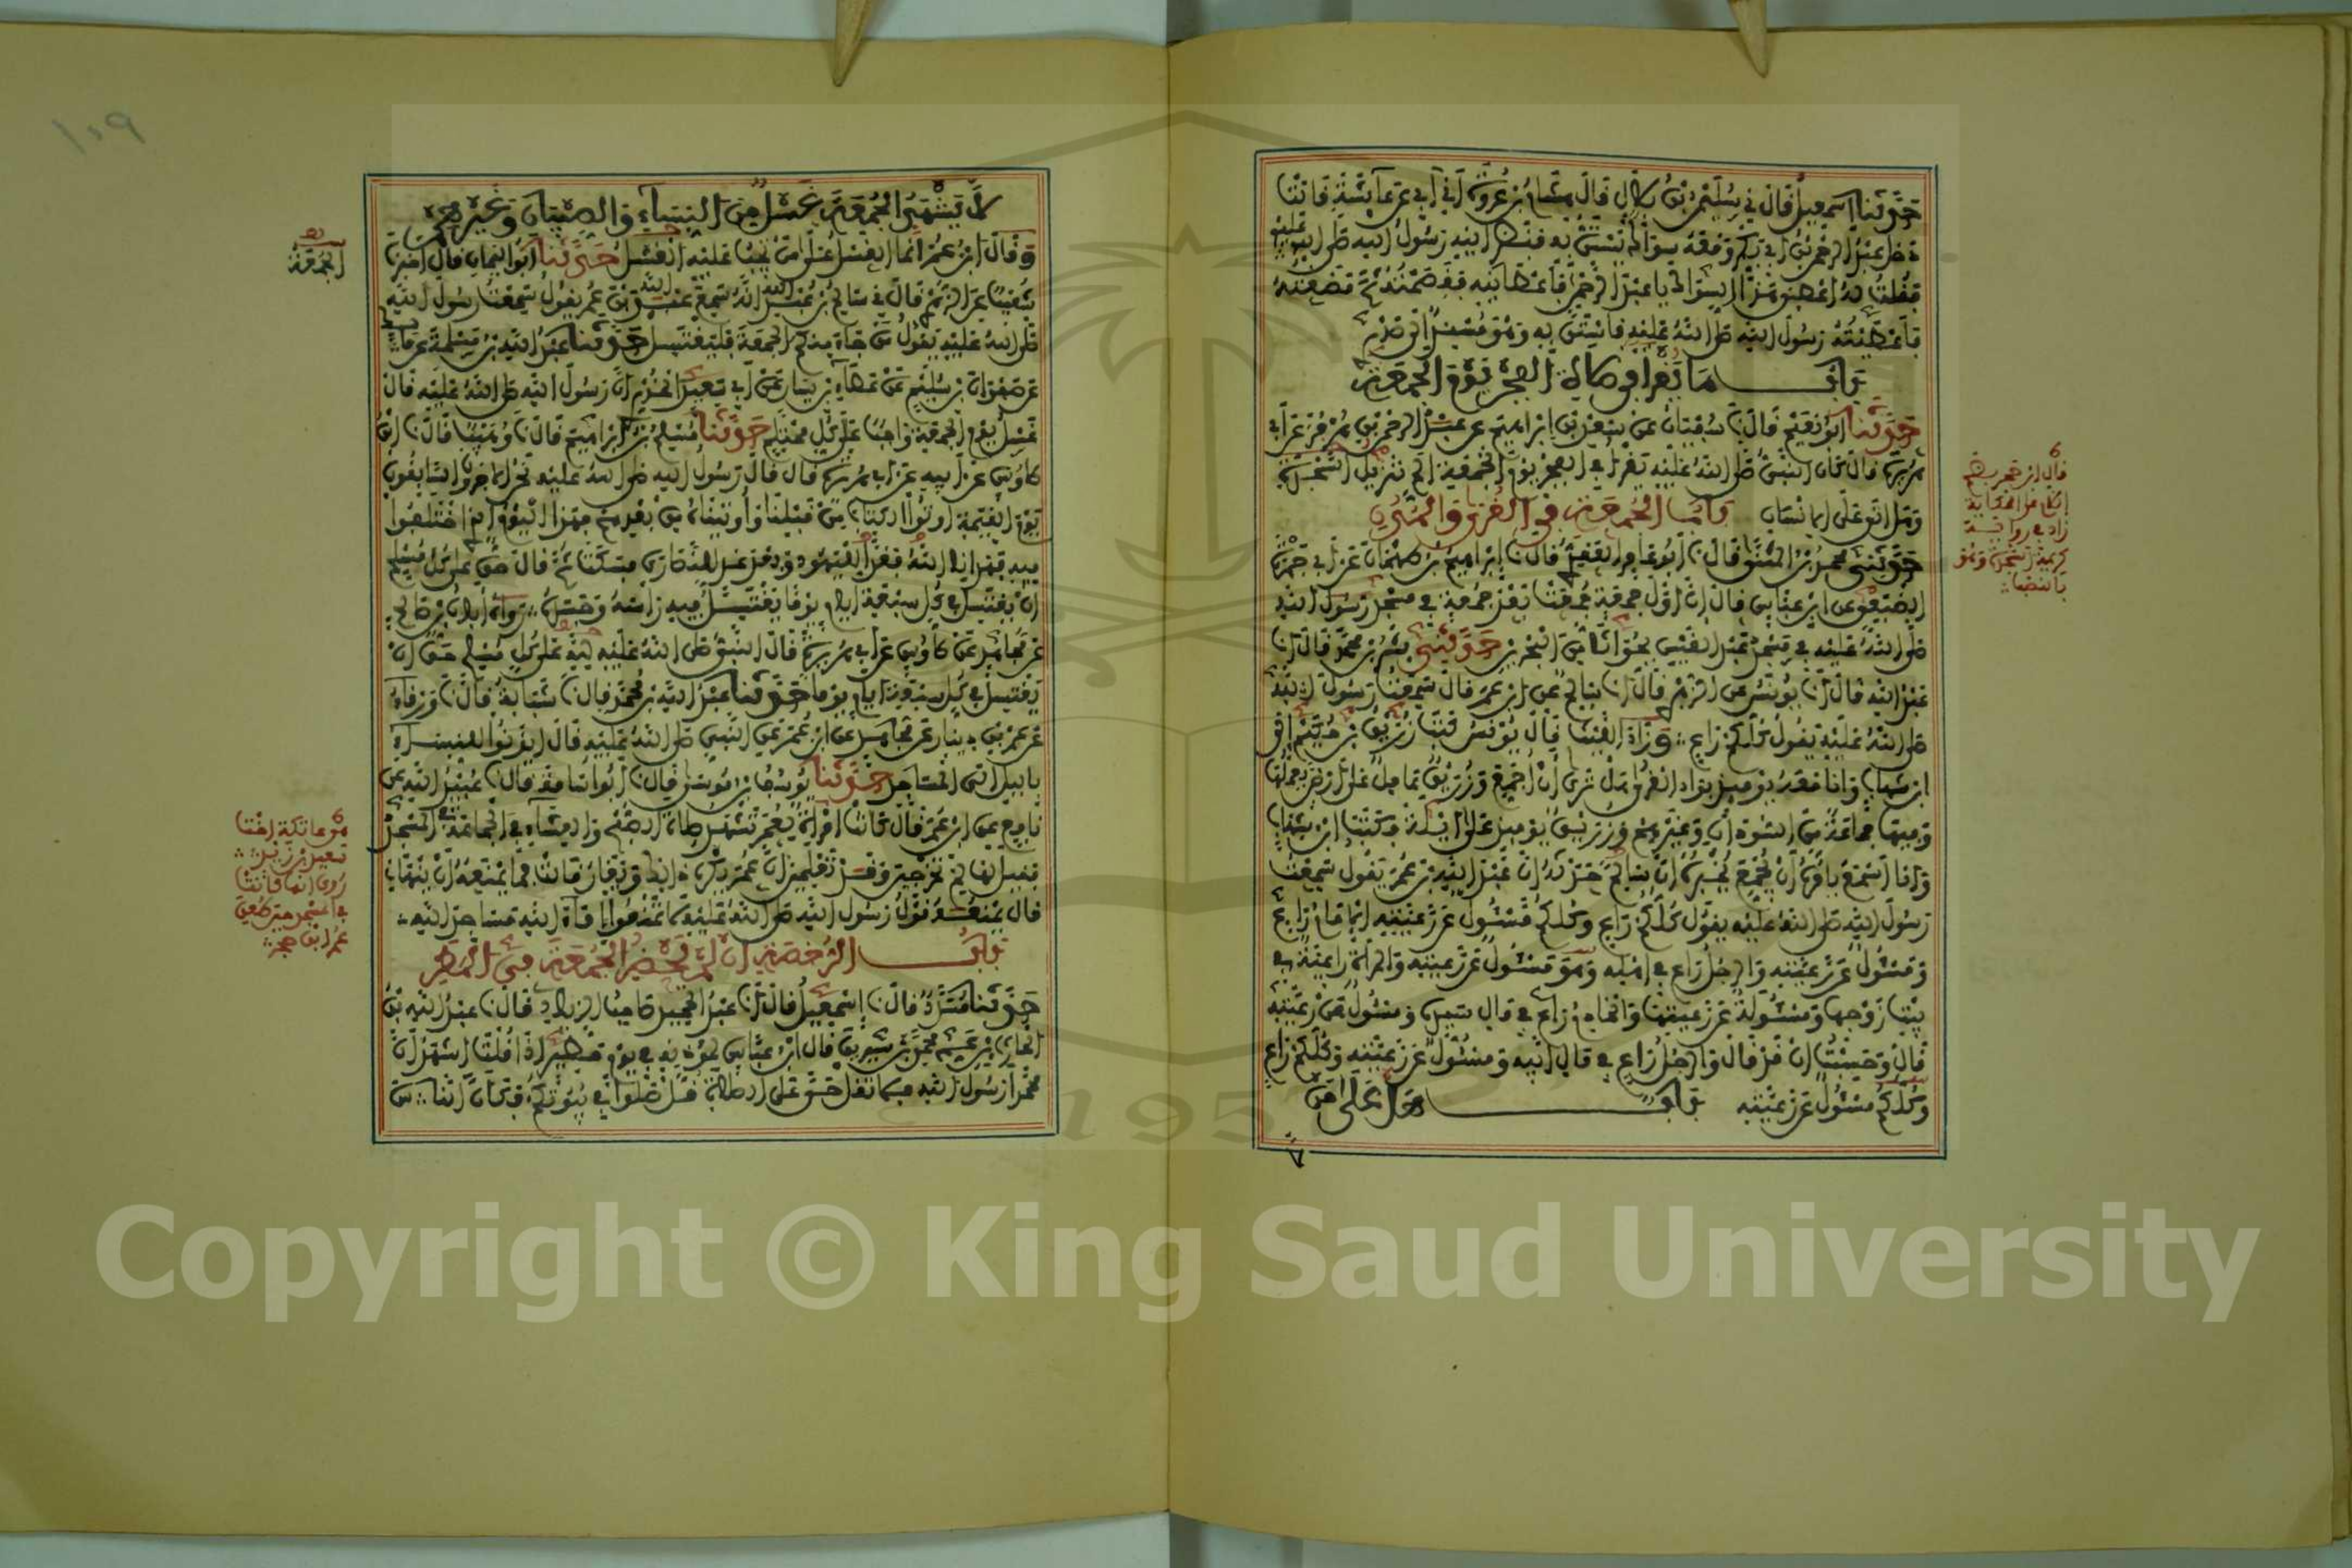 حدثنا إسمعيل قال ني سليمن بن بلال قال قال هشام بن عروة أني أبي عن عائشة قالت
دخل عبد الرحمن بن أبي بكر ومعه سواك يستن به فنظر إليه رسول الله صلى الله عليه
فقلت له أعطني هذا السواك يا عبد الرحمن فأعطانيه فقصمته ثم مضغته
فأعطيته رسول الله صلى الله عليه فاستن به وهو مستند إلى صدري
باب ما يقرأ في صلاة الفجر يوم الجمعة
حدثنا أبو نعيم قال نا سفيان عن سعد بن إبراهيم عن عبد الرحمن بن هرمز عن أبي
هريرة قال كان النبي صلى الله عليه يقرأ في الفجر يوم الجمعة الم تنزيل السجدة
وهل أتى على الإنسان باب الجمعة في القرى والمدن
حدثني محمد بن المثنى قال نا أبو عامر العقدي قال نا إبراهيم بن طهمان عن أبي جمرة
الضبعي عن ابن عباس قال إن أول جمعة جمعت بعد جمعة في مسجد رسول الله
صلى الله عليه في مسجد عبد القيس بجواثا من البحرين حدثني بشر بن محمد قال أنا
عبد الله قال أنا يونس عن الزهري قال أنا سالم عن ابن عمر قال سمعت رسول الله
صلى الله عليه يقول كلكم راع وزاد الليث قال يونس كتب رزيق بن حكيم إلى
ابن شهاب وأنا معه يومئذ بوادي القرى هل ترى أن أجمع ورزيق عامل على أرض يعملها
وفيها جماعة من السودان وغيرهم ورزيق يومئذ على أيلة فكتب ابن شهاب
وأنا أسمع يأمره أن يجمع يخبره أن سالما حدثه أن عبد الله بن عمر يقول سمعت
رسول الله صلى الله عليه يقول كلكم راع وكلكم مسئول عن رعيته الإمام راع
ومسئول عن رعيته والرجل راع في أهله وهو مسئول عن رعيته والمرأة راعية في
بيت زوجها ومسئولة عن رعيتها والخادم راع في مال سيده ومسئول عن رعيته
قال وحسبت أن قد قال والرجل راع في مال أبيه ومسئول عن رعيته وكلكم راع
وكلكم مسئول عن رعيته باب هل على من
قال ابن حجر
زاد في رواية
كريمة السجدة وهو
بالنصب
لا يشهد الجمعة غسل من النساء والصبيان وغيرهم
وقال ابن عمر إنما الغسل على من تجب عليه الجمعة حدثنا أبو اليمان قال أخبرنا
شعيب عن الزهري قال ني سالم بن عبد الله أنه سمع عبد الله بن عمر يقول سمعت رسول الله
صلى الله عليه يقول من جاء منكم الجمعة فليغتسل حدثنا عبد الله بن مسلمة عن مالك
عن صفوان بن سليم عن عطاء بن يسار عن أبي سعيد الخدري أن رسول الله صلى الله عليه قال
غسل يوم الجمعة واجب على كل محتلم حدثنا مسلم بن إبراهيم قال نا وهيب قال نا ابن
طاوس عن أبيه عن أبي هريرة قال قال رسول الله صلى الله عليه نحن الآخرون السابقون
يوم القيمة أوتوا الكتاب من قبلنا وأوتيناه من بعدهم فهذا اليوم الذي اختلفوا
فيه فهدانا الله فغدا لليهود وبعد غد للنصارى فسكت ثم قال حق على كل مسلم
أن يغتسل في كل سبعة أيام يوما يغتسل فيه رأسه وجسده رواه أبان بن صالح
عن مجاهد عن طاوس عن أبي هريرة قال النبي صلى الله عليه لله على كل مسلم حق أن
يغتسل في كل سبعة أيام يوما حدثنا عبد الله بن محمد قال نا شبابة قال نا ورقاء
عن عمرو بن دينار عن مجاهد عن ابن عمر عن النبي صلى الله عليه قال ايذنوا للنساء
بالليل إلى المساجد حدثنا يوسف بن موسى قال نا أبو أسامة قال نا عبيد الله عن
نافع عن ابن عمر قال كانت امرأة لعمر تشهد صلاة الصبح والعشاء في الجماعة في المسجد
فقيل لها لم تخرجين وقد تعلمين أن عمر يكره ذلك ويغار قالت فما يمنعه أن ينهاني
قال يمنعه قول رسول الله صلى الله عليه لا تمنعوا إماء الله مساجد الله
باب الرخصة إن لم يحضر الجمعة في المطر
حدثنا مسدد قال نا إسمعيل قال أنا عبد الحميد صاحب الزيادي قال نا عبد الله بن
الحارث بن عم محمد بن سيرين قال ابن عباس لمؤذنه في يوم مطير إذا قلت أشهد أن
محمدا رسول الله فلا تقل حي على الصلاة قل صلوا في بيوتكم فكأن الناس
الجمعة
هو عاتكة أخت
سعيد بن زيد
روي أنها كانت
في المسجد حين طعن
عمر ابن حجر
١٠٩
Copyright © King Saud University
195